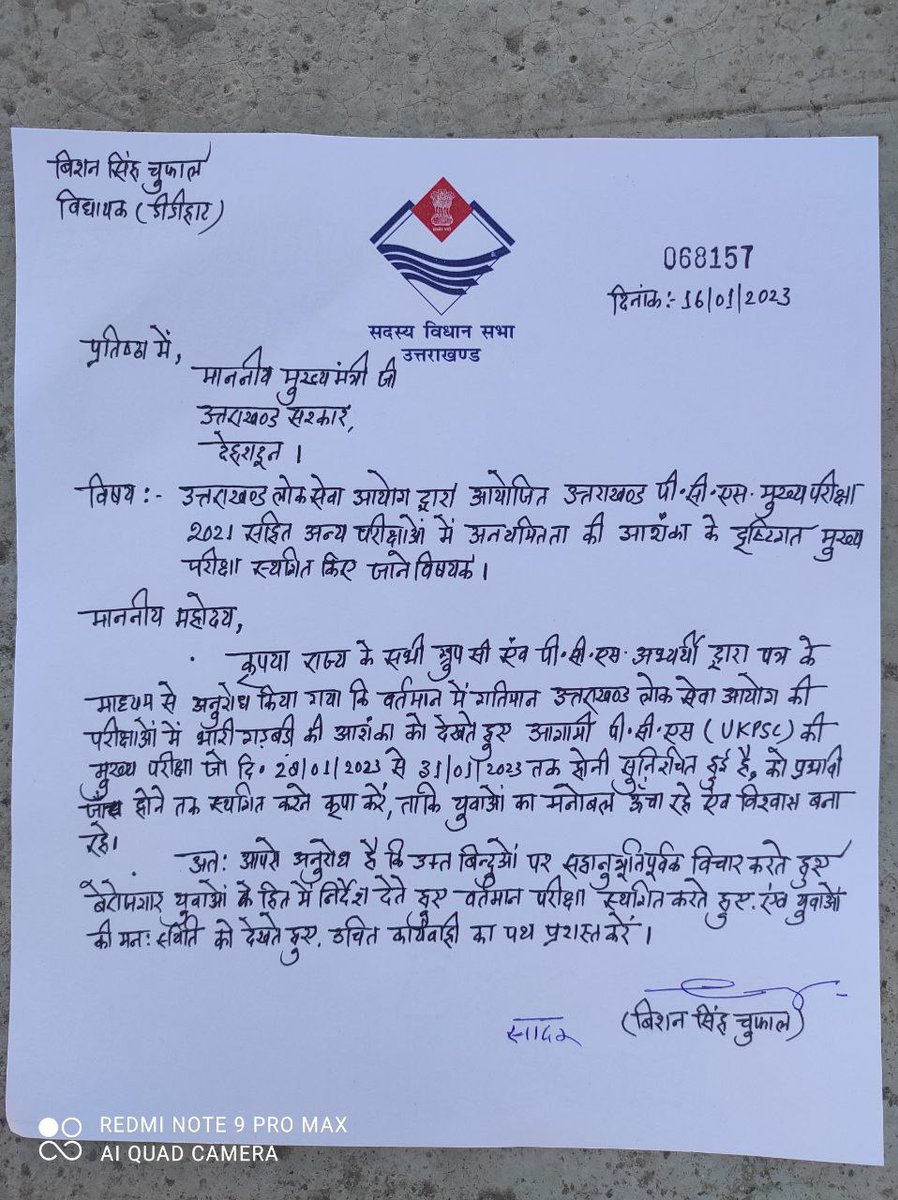 बिशन सिंह चुफाल
विधायक (डीडीहाट)
068157
दिनांक:- 16/01/2023
सदस्य विधान सभा
उत्तराखण्ड
प्रतिष्ठा में,
माननीय मुख्यमंत्री जी
उत्तराखण्ड सरकार,
देहरादून ।
विषय:- उत्तराखण्ड लोक सेवा आयोग द्वारा आयोजित उत्तराखण्ड पी॰सी॰एस॰ मुख्य परीक्षा
2021 सहित अन्य परीक्षाओं में अनयमितता की आशंका के दृष्टिगत मुख्य
परीक्षा स्थगित किए जाने विषयक ।
माननीय महोदय,
कृपया राज्य के सभी ग्रुप सी एंव पी॰सी॰एस॰ अभ्यर्थी द्वारा पत्र के
माध्यम से अनुरोध किया गया कि वर्तमान में गतिमान उत्तराखण्ड लोक सेवा आयोग की
परीक्षाओं में भारी गड़बडी की आशंका को देखते हुए आगामी पी॰सी॰एस (UKPSC) की
मुख्य परीक्षा जो दि॰ 28/01/2023 से 31/01/2023 तक होनी सुनिश्चित हुई है, को प्रभावी
जाँच होने तक स्थगित करते कृपा करें, ताकि युवाओं का मनोबल ऊँचा रहे एंव विश्वास बना
रहे।
अतः आपसे अनुरोध है कि उक्त बिन्दुओं पर सहानुभूतिपूर्वक विचार करते हुए
बेरोजगार युवाओं के हित में निर्देश देते हुए वर्तमान परीक्षा स्थगित करते हुए एंव युवाओं
की मनः स्थिति को देखते हुए, उचित कार्यवाही का पथ प्रशस्त करें ।
सादर
(बिशन सिंह चुफाल)
REDMI NOTE 9 PRO MAX
AI QUAD CAMERA